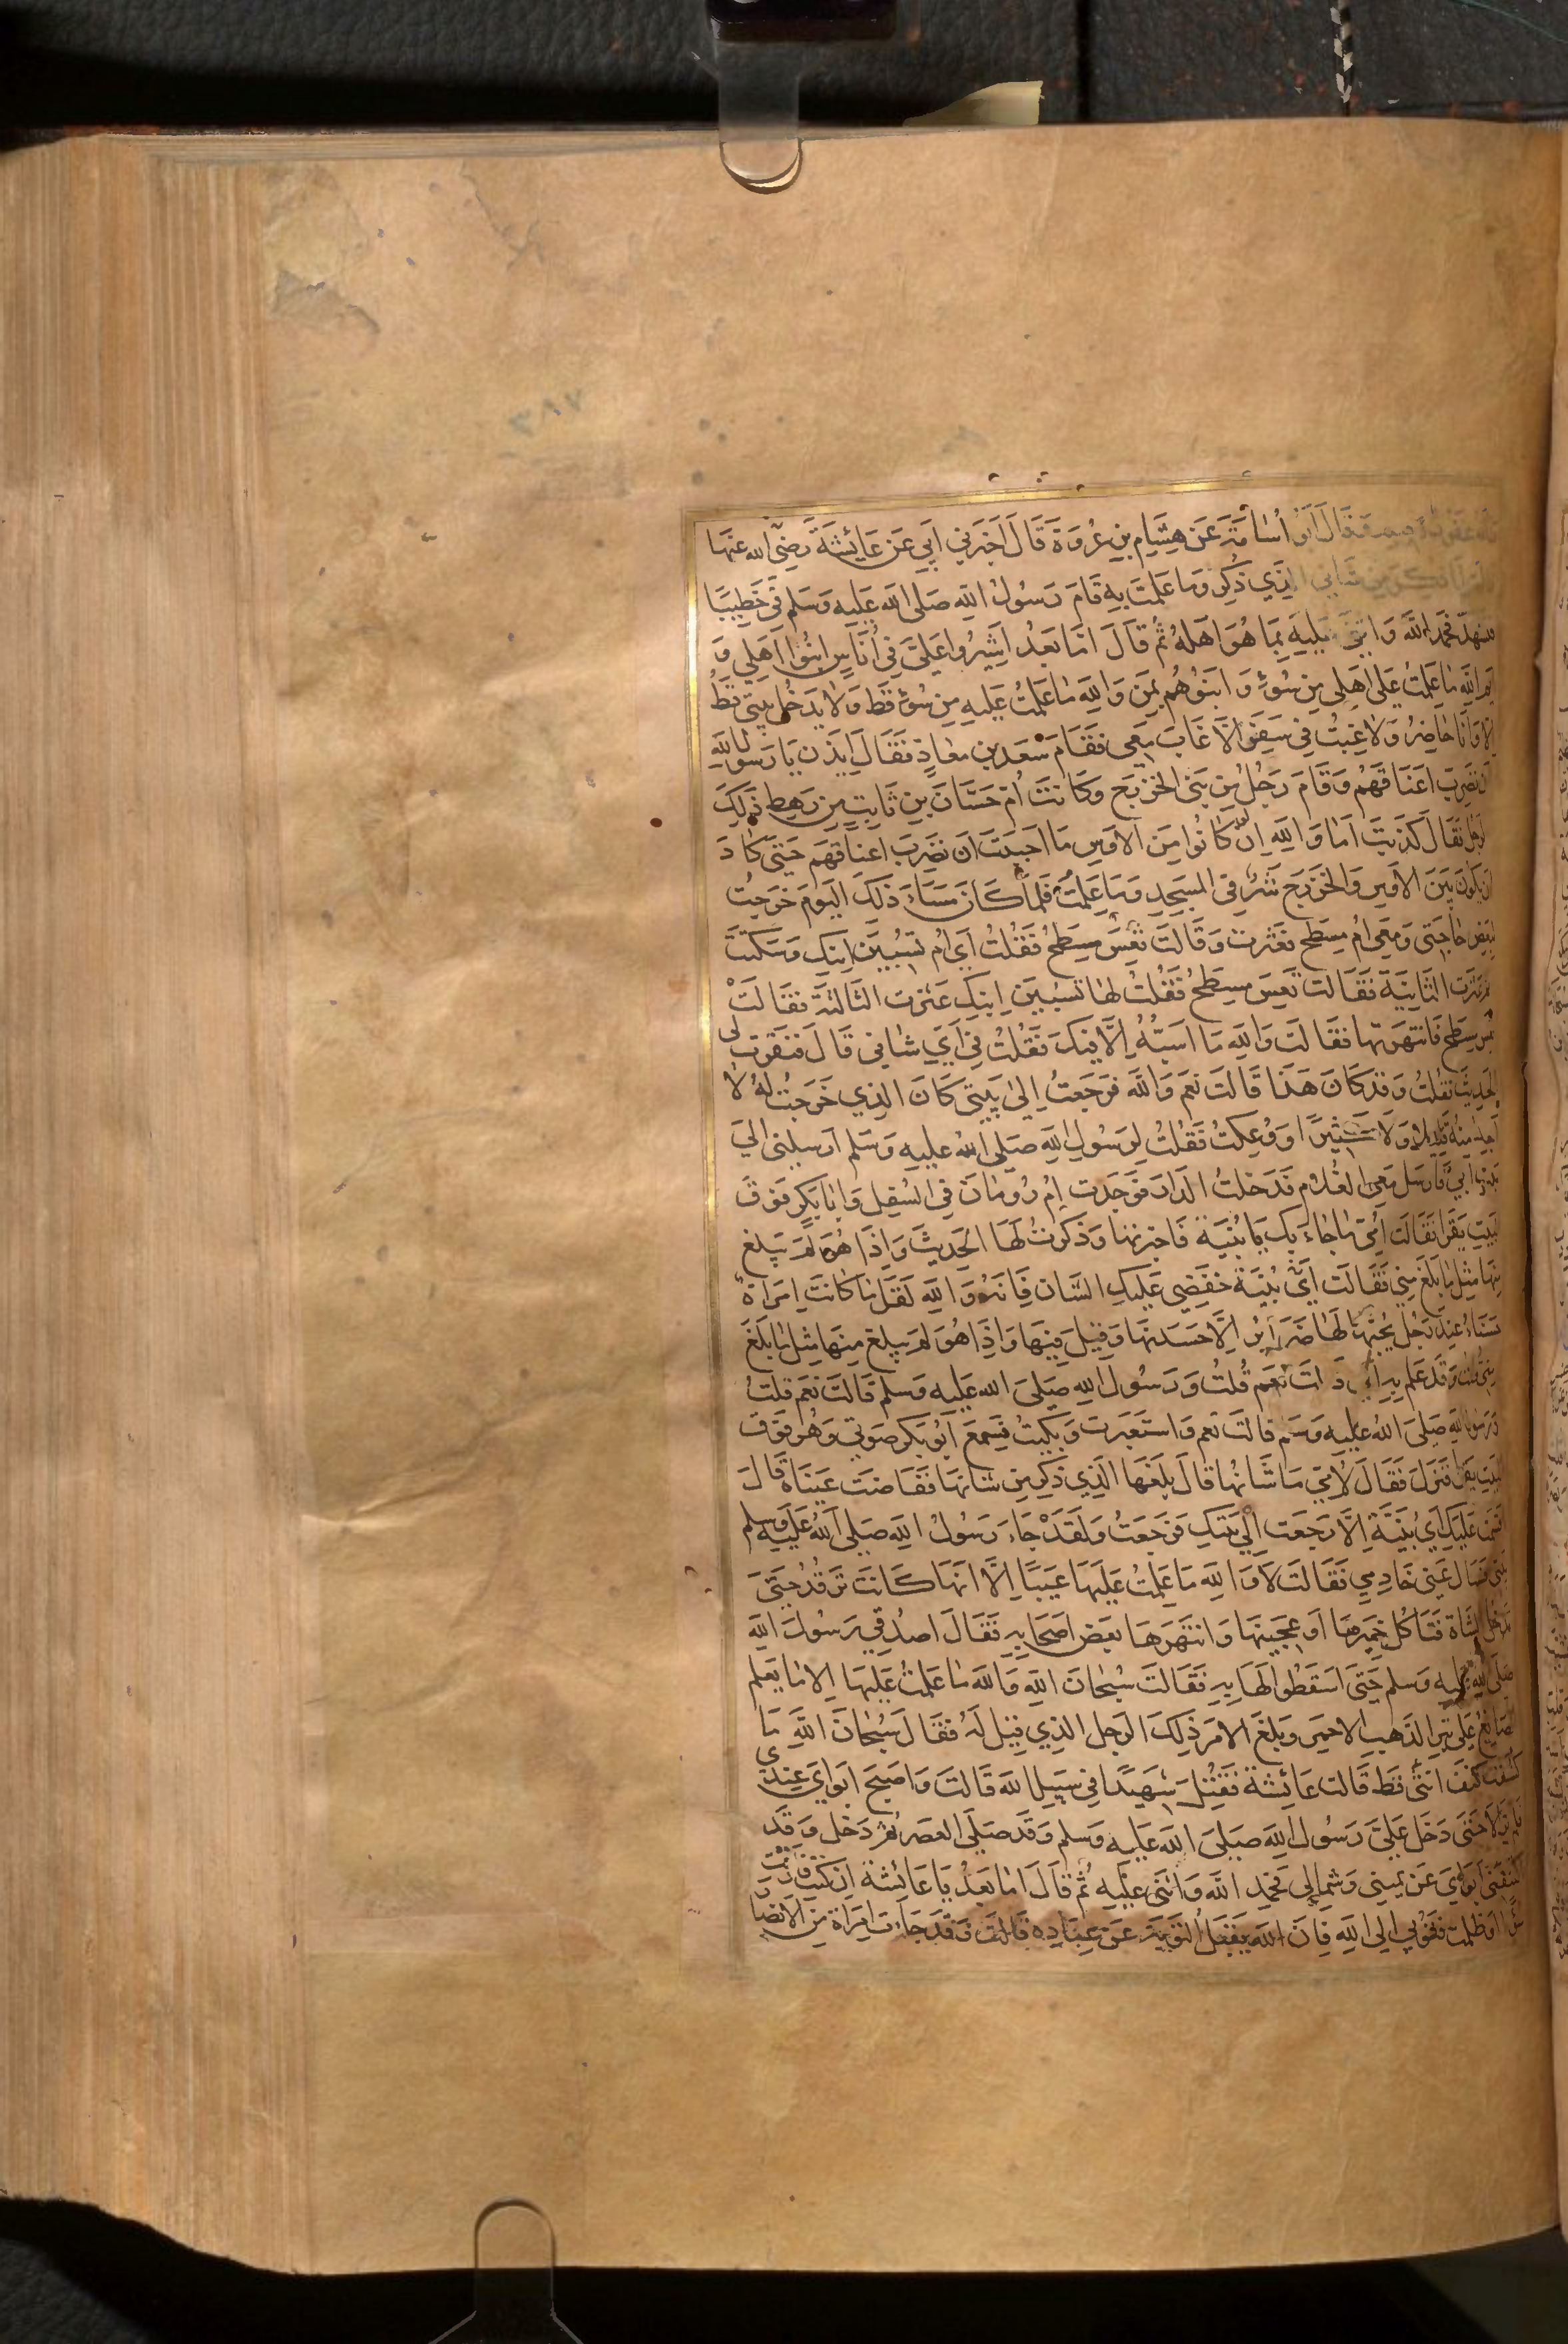 وقال أبو أسامة عن هشام بن عروة قال أخبرني أبي عن عائشة رضي الله عنها
الذي ذكر وما علمت به قام رسول الله صلى الله عليه وسلم في خطيبا
فتشهد فحمد الله واثنى عليه بما هو أهله ثم قال اما بعد اشيروا علي في أناس ابنوا اهلي و
ايم الله ما علمت على اهلي من سوء وابنوهم بمن والله ما علمت عليه من سوء قط ولا يدخل بيتي قط
الا وانا حاضر ولا غبت في سفر الا غاب معي فقام سعد بن معاذ فقال ايذن يا رسول الله
ان نضرب اعناقهم وقام رجل من بني الخزرج وكانت أم حسان بن ثابت من رهط ذلك
الرجل فقال كذبت اما والله ان لو كانوا من الاوس ما احببت ان تضرب اعناقهم حتى كاد
ان يكون بين الاوس والخزرج شر في المسجد وما علمت فلما كان مساء ذلك اليوم خرجت
لبعض حاجتي ومعي ام مسطح فعثرت وقالت تعس مسطح فقلت اي ام تسبين ابنك وسكتت
ثم عثرت الثانية فقالت تعس مسطح فقلت لها تسبين ابنك عثرت الثالثة فقالت
تعس مسطح فانتهرتها فقالت والله ما اسبه إلا فيك فقلت في أي شاني قال فنقرت لي
الحديث فقلت وقد كان هذا قالت نعم والله فرجعت إلى بيتي كان الذي خرجت له لا
اجد منه قليلا ولا كثيرا ووعكت فقلت لرسول الله صلى الله عليه وسلم ارسلني الى
بيت ابي فارسل معي الغلام فدخلت الدار فوجدت ام رومان في السفل وابا بكر فوق
البيت يقرا فقالت أمي ما جاء بك يا بنية فاخبرتها وذكرت لها الحديث واذا هو لم يبلغ
منها مثل ما بلغ مني فقالت أي بنية خفضي عليك الشان فانه والله لقل ما كانت امراة
حسناء عند رجل يحبها لها ضراير إلا حسدنها وقيل فيها واذا هو لم يبلغ منها مثل ما بلغ
مني قلت وقد علم به أبي قالت نعم قلت ورسول الله صلى الله عليه وسلم قالت نعم قلت
ورسول الله صلى الله عليه وسلم قالت نعم واستعبرت وبكيت فسمع أبو بكر صوتي وهو فوق
البيت يقرا فنزل فقال لأمي ما شانها قال بلغها الذي ذكر من شانها ففاضت عيناه قال
اقسمت عليك اي بنية إلا رجعت الى بيتك فرجعت ولقد جاء رسول الله صلى الله عليه وسلم
بيتي فسال عني خادمي فقالت لا والله ما علمت عليها عيبا إلا انها كانت ترقد حتى
تدخل الشاة فتاكل خميرها أو عجينها وانتهرها بعض اصحابه فقال اصدقي رسول الله
صلى الله عليه وسلم حتى اسقطوا لها به فقالت سبحان الله والله ما علمت عليها الا ما يعلم
الصايغ على تبر الذهب الاحمر وبلغ الامر ذلك الرجل الذي قيل له فقال سبحان الله ما
كشفت كنف انثى قط قالت عائشة فقتل شهيدا في سبيل الله قالت واصبح ابواي عندي
فلم يزالا حتى دخل علي رسول الله صلى الله عليه وسلم وقد صلى العصر ثم دخل وقد
اكتنفني ابواي عن يميني وشمالي فحمد الله واثنى عليه ثم قال اما بعد يا عائشة ان كنت قارفت
سوا او ظلمت فتوبي الى الله فان الله يقبل التوبة عن عباده قالت وقد جاءت امراة من الانصار